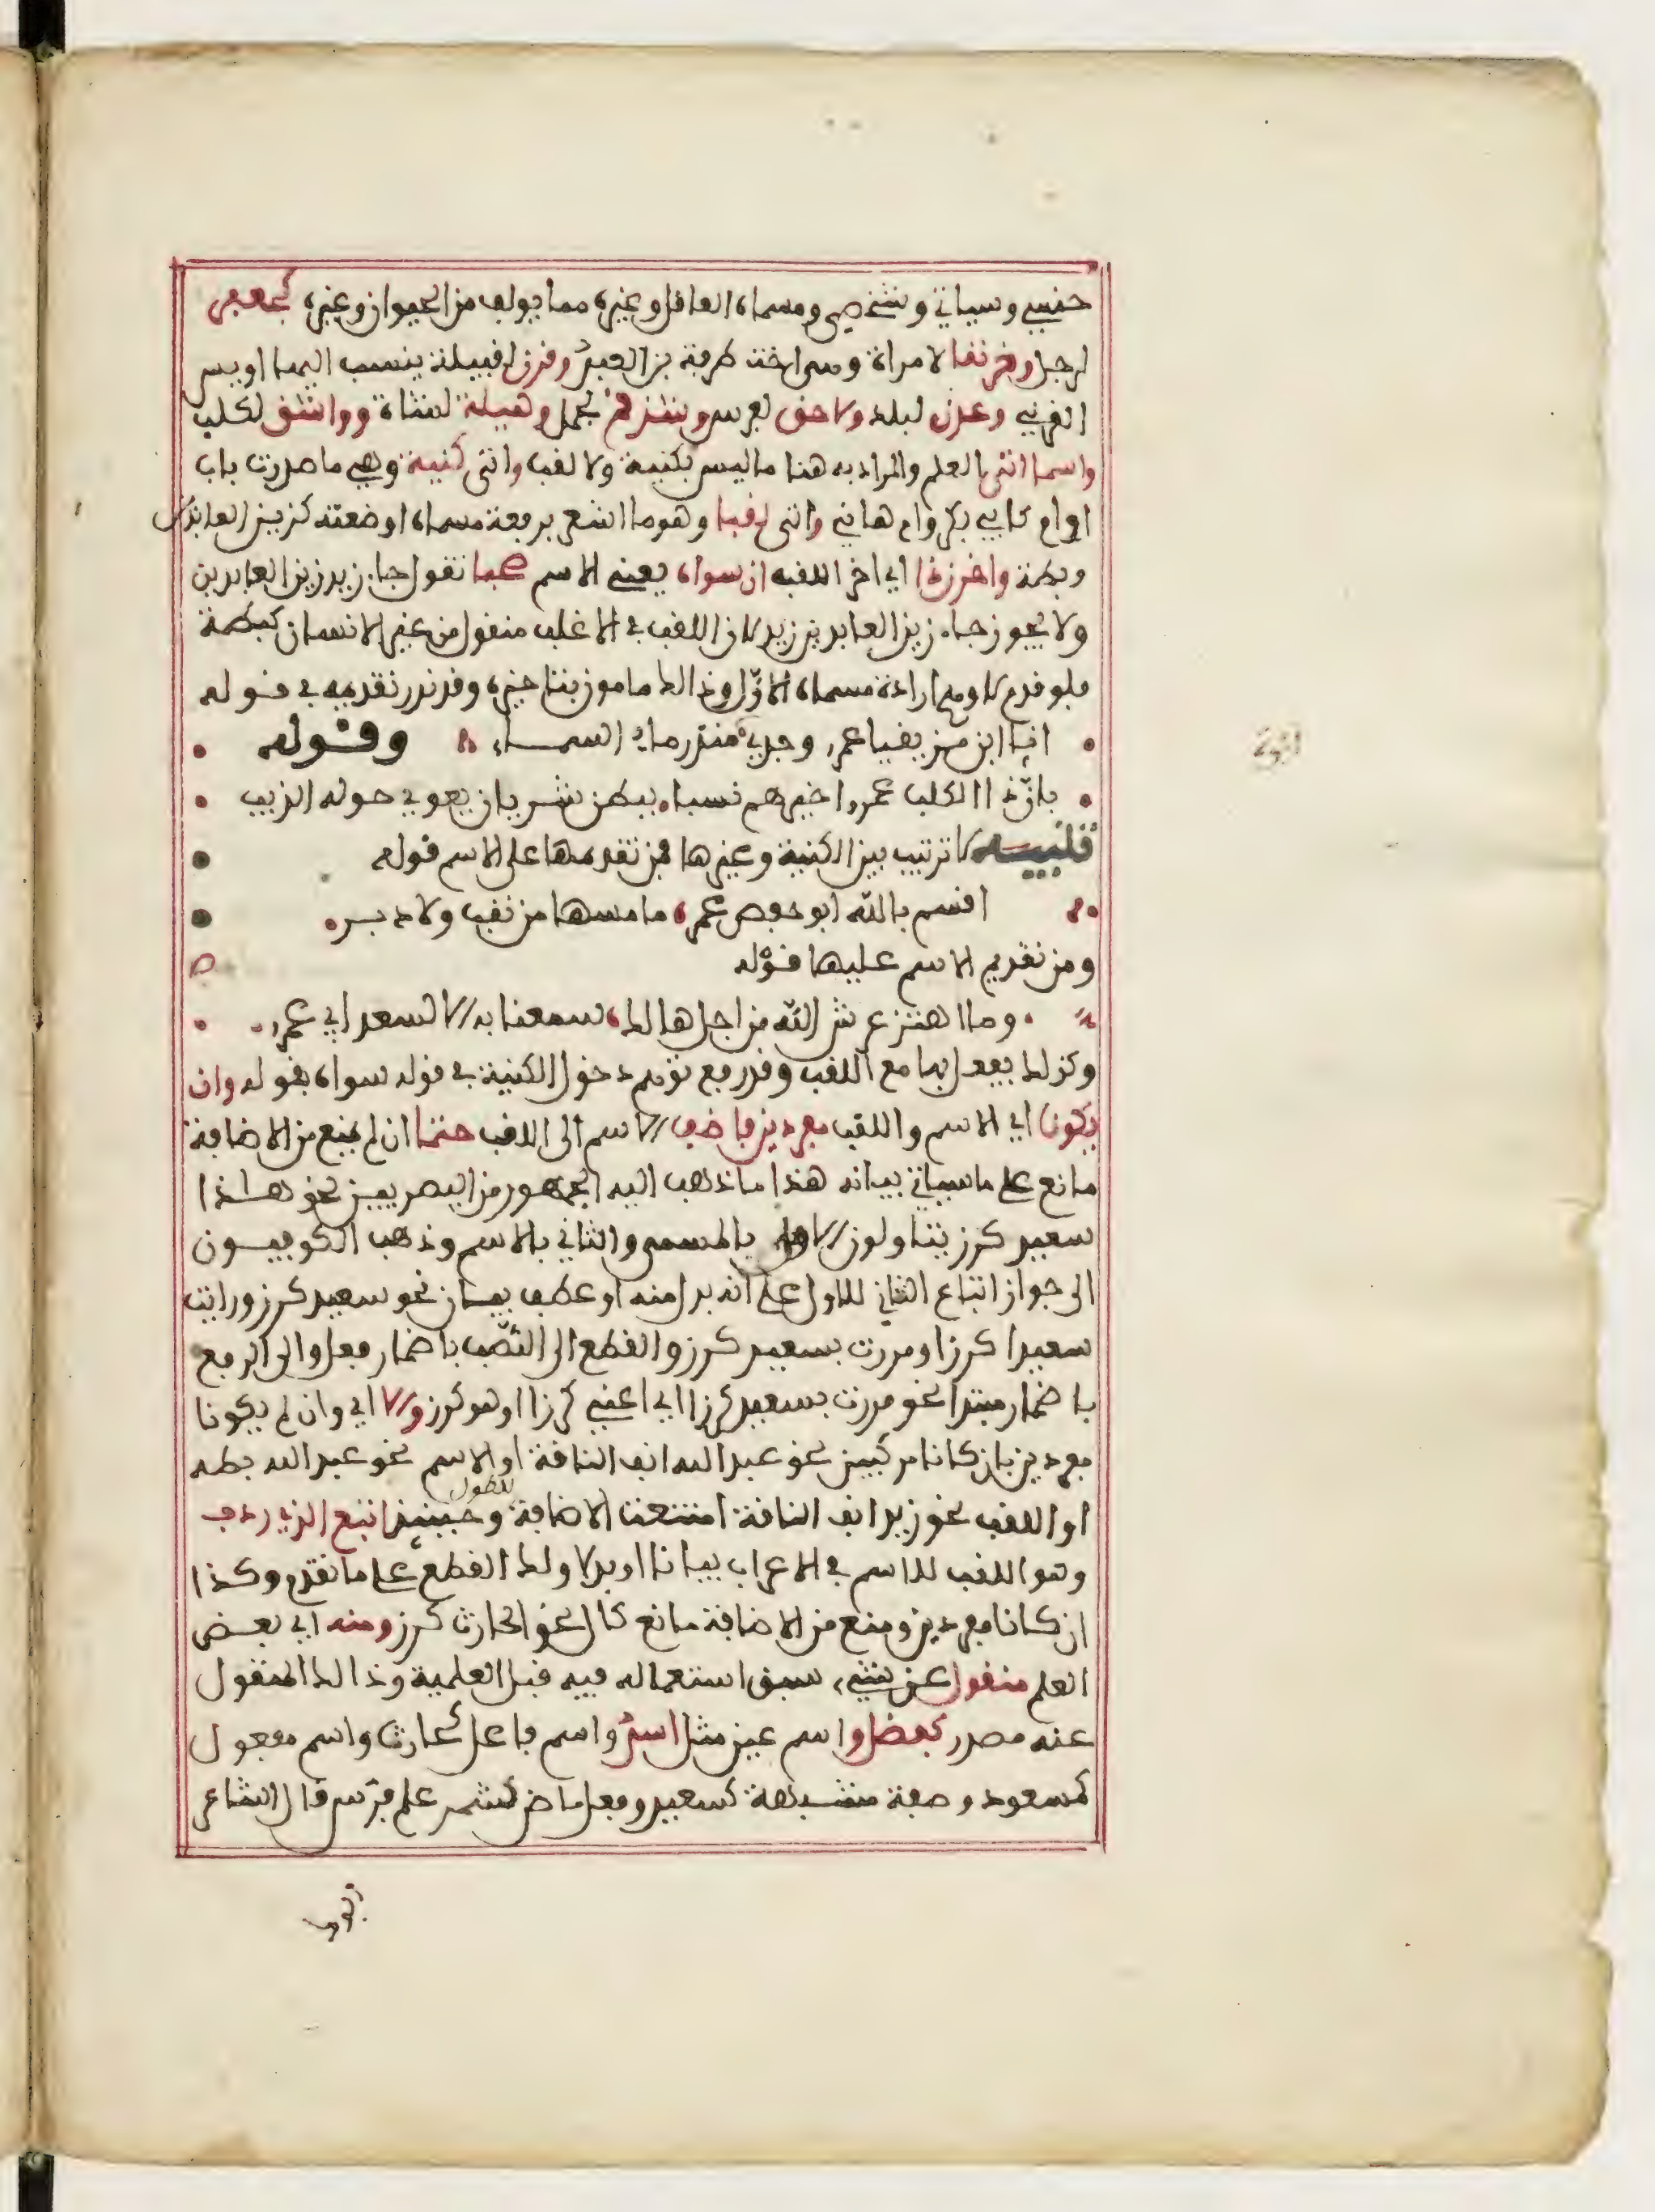 جنسي وسياتي وشخصي ومسماه العافل وغيره مما يولف من الحيوان وغيره كجعفر
لرجل وخرنفا لامراة وهي اخت طرفة بن العبد وفرن لفبيلة ينسب اليها اويس
الفرني وعدن لبلد ولاحق لفرس وشذفم لجمل وهيلة لشاة وواشق لكلب
واسما اتى العلم والمراد به هنا ما ليس بكنية ولا لفب واتى كنية وهي ما صدرت باب
او ام كابي بكر وام هاني واتى لفبا وهو ما اشعر برفعة مسماه او ضعته كزين العابدين
وبطة واخرن ذا اي اخر اللفب ان سواه يعني الاسم صحبا تقول جاء زيد زين العابدين
ولا يجوز جاء زين العابدين زيد لان اللفب في الاغلب منفول من غير الانسان كبطة
فلو فدم لاوهم ارادة مسماه الاول وذالك مامون بتاخيره وفد ندر تقديمه في فوله
انا ابن مزيفيا عمرو وجدي منذر ماء السماء وفوله
بان ذا الكلب عمرا خيرهم نسبا ببطن شريان يعوي حوله الذيب
لا ترتيب بين الكنية وغيرها فمن تقدمها على الاسم فوله
افسم بالله ابو حفص عمر ما مسها من نفب ولا دبر
ومن تقديم الاسم عليها فوله
وما اهتز عرش الله من اجل هالك سمعنا به الا لسعد ابي عمرو
وكذلك يفعل بها مع اللفب وفد رفع توهم دخول الكنية في فوله سواه بفوله وان
يكونا اي الاسم واللفب مفردين فاضف الاسم الى اللفب حتما ان لم يمنع من الاضافة
مانع على ما سياتي بيانه هذا ما ذهب اليه الجمهور من البصريين نحو هذا
سعيد كرز يتاولون الاول بالمسمى والثاني بالاسم وذهب الكوفيون
الى جواز اتباع الثاني للاول على انه بدل منه او عطف بيان نحو سعيد كرز ورايت
سعيدا كرزا ومررت بسعيد كرز والفطع الى النصب باضمار فعل والى الرفع
باضمار مبتدا نحو مررت بسعيد كرزا اي اعني كرزا او هو كرز والا اي وان لم يكونا
مفردين بان كانا مركبين نحو عبد الله انف النافة او الاسم نحو عبد الله بطه
او اللفب نحو زيد انف النافة امتنعت الاضافة للطول وحينئذ اتبع الذي ردف
وهو اللفب للاسم في الاعراب بيانا او بدلا ولك الفطع على ما تقدم وكذا
ان كانا مفردين ومنع من الاضافة مانع كال نحو الحارث كرز ومنه اي بعض
العلم منفول عن شيء سبق استعماله فيه فبل العلمية وذالك المنفول
عنه مصدر كفضل واسم عين مثل اسد واسم فاعل كحارث واسم مفعول
كمسعود وصفة مشبهة كسعيد وفعل ماض كشمر علم فرس فال الشاعر